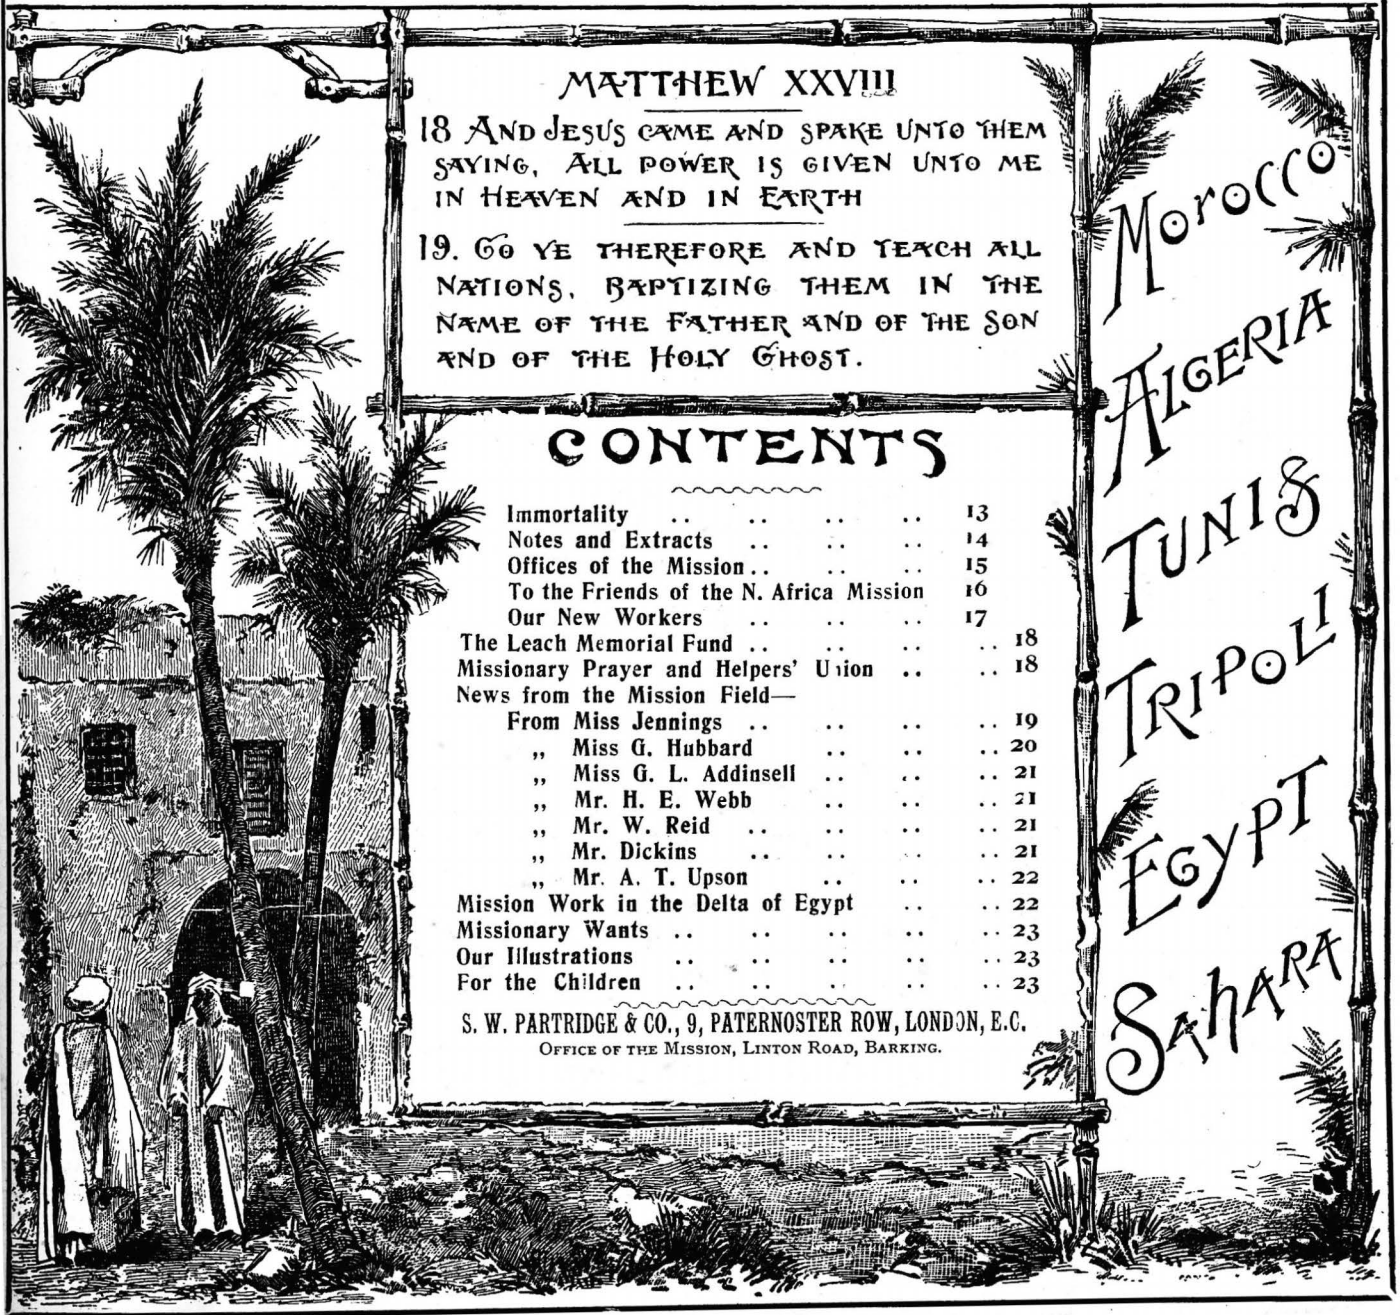 MATTHEW XXVIII
18 AND JESUS CAME AND SPAKE UNTO THEM
SAYING, ALL POWER IS GIVEN UNTO ME
IN HEAVEN AND IN EARTH
19. GO YE THEREFORE AND TEACH ALL
NATIONS, BAPTIZING THEM IN THE
NAME OF THE FATHER AND OF THE SON
AND OF THE HOLY GHOST.
CONTENTS
Immortality .. .. .. .. 13
Notes and Extracts .. .. .. 14
Offices of the Mission .. .. .. 15
To the Friends of the N. Africa Mission 16
Our New Workers .. .. .. 17
The Leach Memorial Fund .. .. .. .. 18
Missionary Prayer and Helpers' Union .. .. 18
News from the Mission Field—
From Miss Jennings .. .. .. .. 19
„ Miss G. Hubbard .. .. .. 20
„ Miss G. L. Addinsell .. .. .. 21
„ Mr. H. E. Webb .. .. .. 21
„ Mr. W. Reid .. .. .. .. 21
„ Mr. Dickins .. .. .. .. 21
„ Mr. A. T. Upson .. .. .. 22
Mission Work in the Delta of Egypt .. .. 22
Missionary Wants .. .. .. .. .. 23
Our Illustrations .. .. .. .. .. 23
For the Children .. .. .. .. .. 23
S. W. PARTRIDGE & CO., 9, PATERNOSTER ROW, LONDON, E.C.
OFFICE OF THE MISSION, LINTON ROAD, BARKING.
MOROCCO
ALGERIA
TUNIS
TRIPOLI
EGYPT
SAHARA